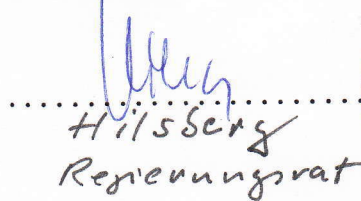 Hilsberg
Regierungsrat